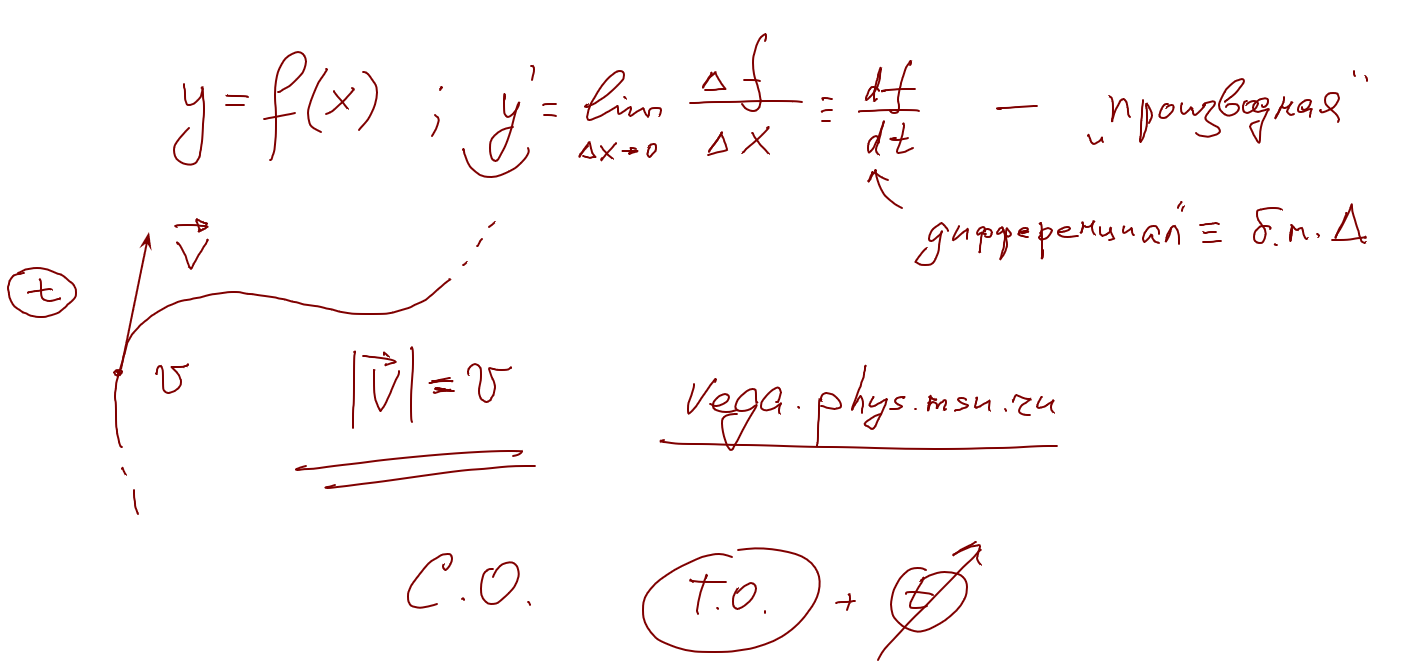 y = f(x) ; y' = lim Δx→0 Δf/Δx ≡ df/dt — „производная“
дифференциал“ ≡ б.м. Δ
V⃗
t
v
|V⃗| = v
vega.phys.msu.ru
С.О. Т.О. + t